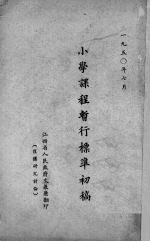 一九五〇年七月
小學課程暫行標準初稿
江西省人民政府文教廳翻印
(僅供研究討論)